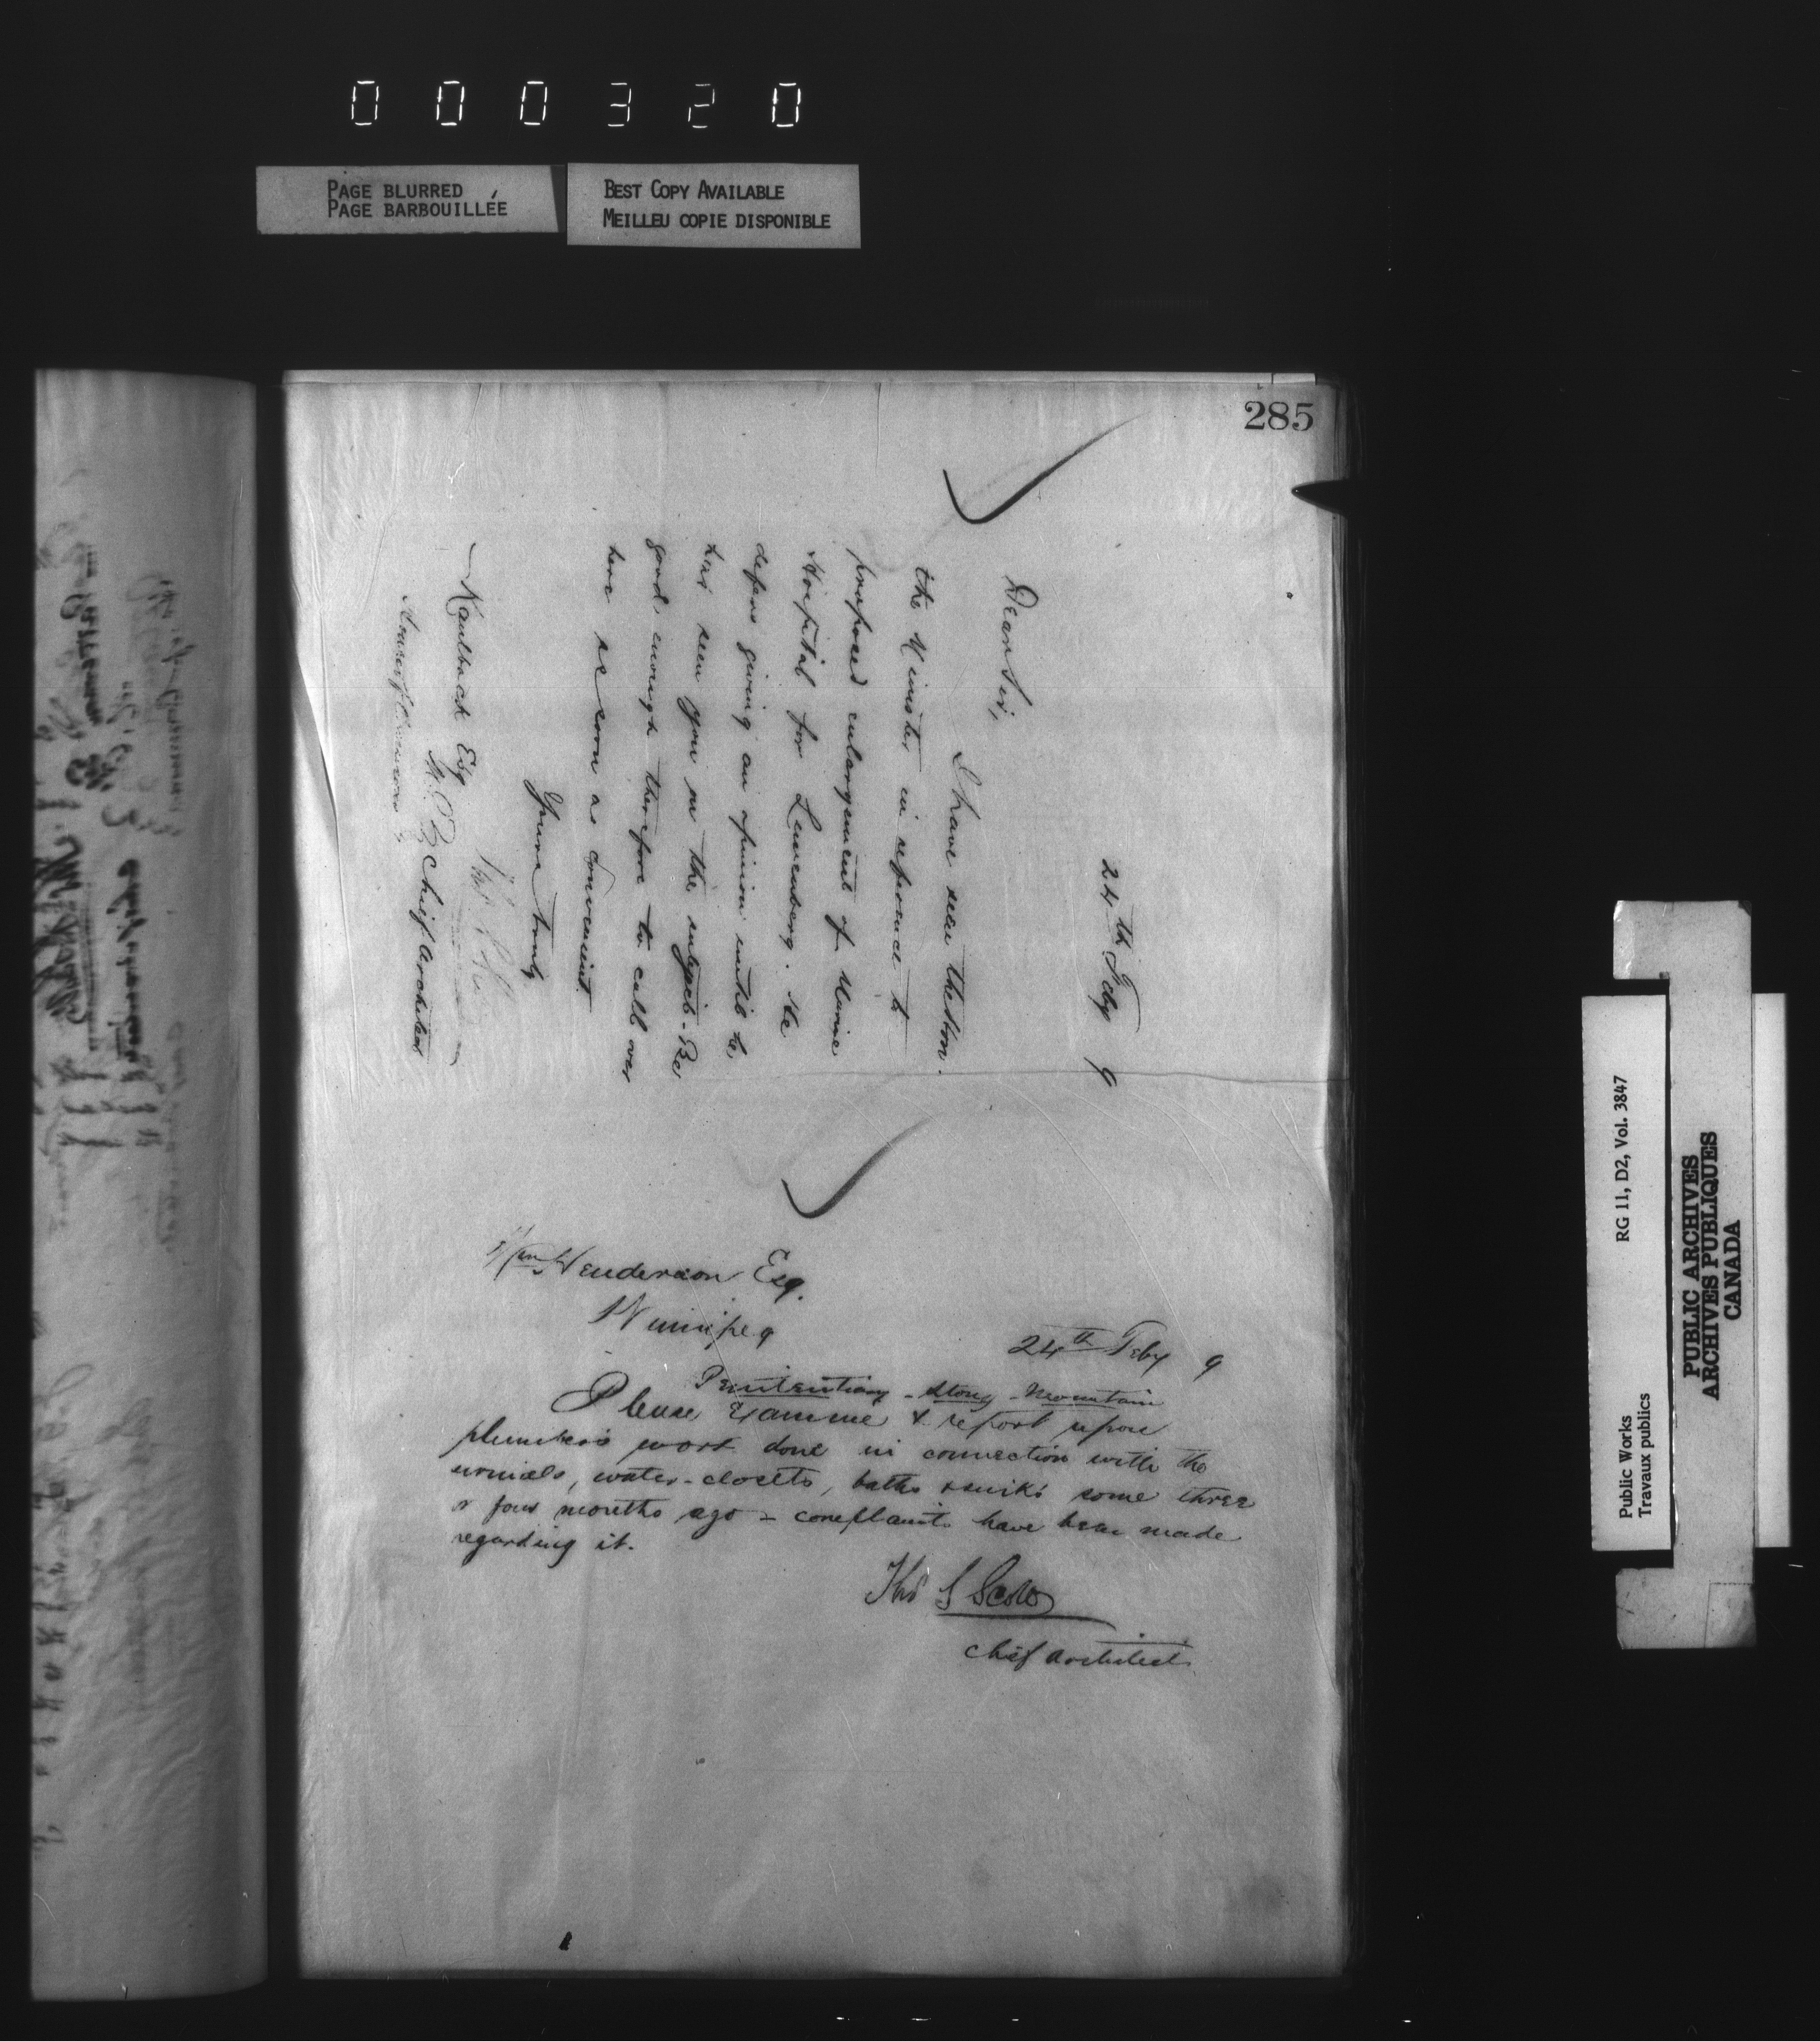 000320
PAGE BLURRED
PAGE BARBOUILLÉE
BEST COPY AVAILABLE
MEILLEU COPIE DISPONIBLE
285
24th Feby 9
Dear Sir,
I have seen the Hon.
the Minister in reference to
proposed enlargement of Marine
Hospital for Lunenburg. He
defers giving an opinion until he
has seen you on the subject - Be
good enough therefore to call over
here as soon as convenient.
Yours truly
Kaulback Esq
M.P.
Chief Architect
House of Commons
Wm Henderson Esq.
Winnipeg
24th Feby 9
Penitentiary - Stony - Mountain
Please Examine & report upon
plumber's work done in connection with the
urinals, water-closets, baths & sinks some three
or four months ago - complaints have been made
regarding it.
Thos S Scott
Chief Architect
RG 11, D2, Vol. 3847
Public Works
Travaux publics
PUBLIC ARCHIVES
ARCHIVES PUBLIQUES
CANADA